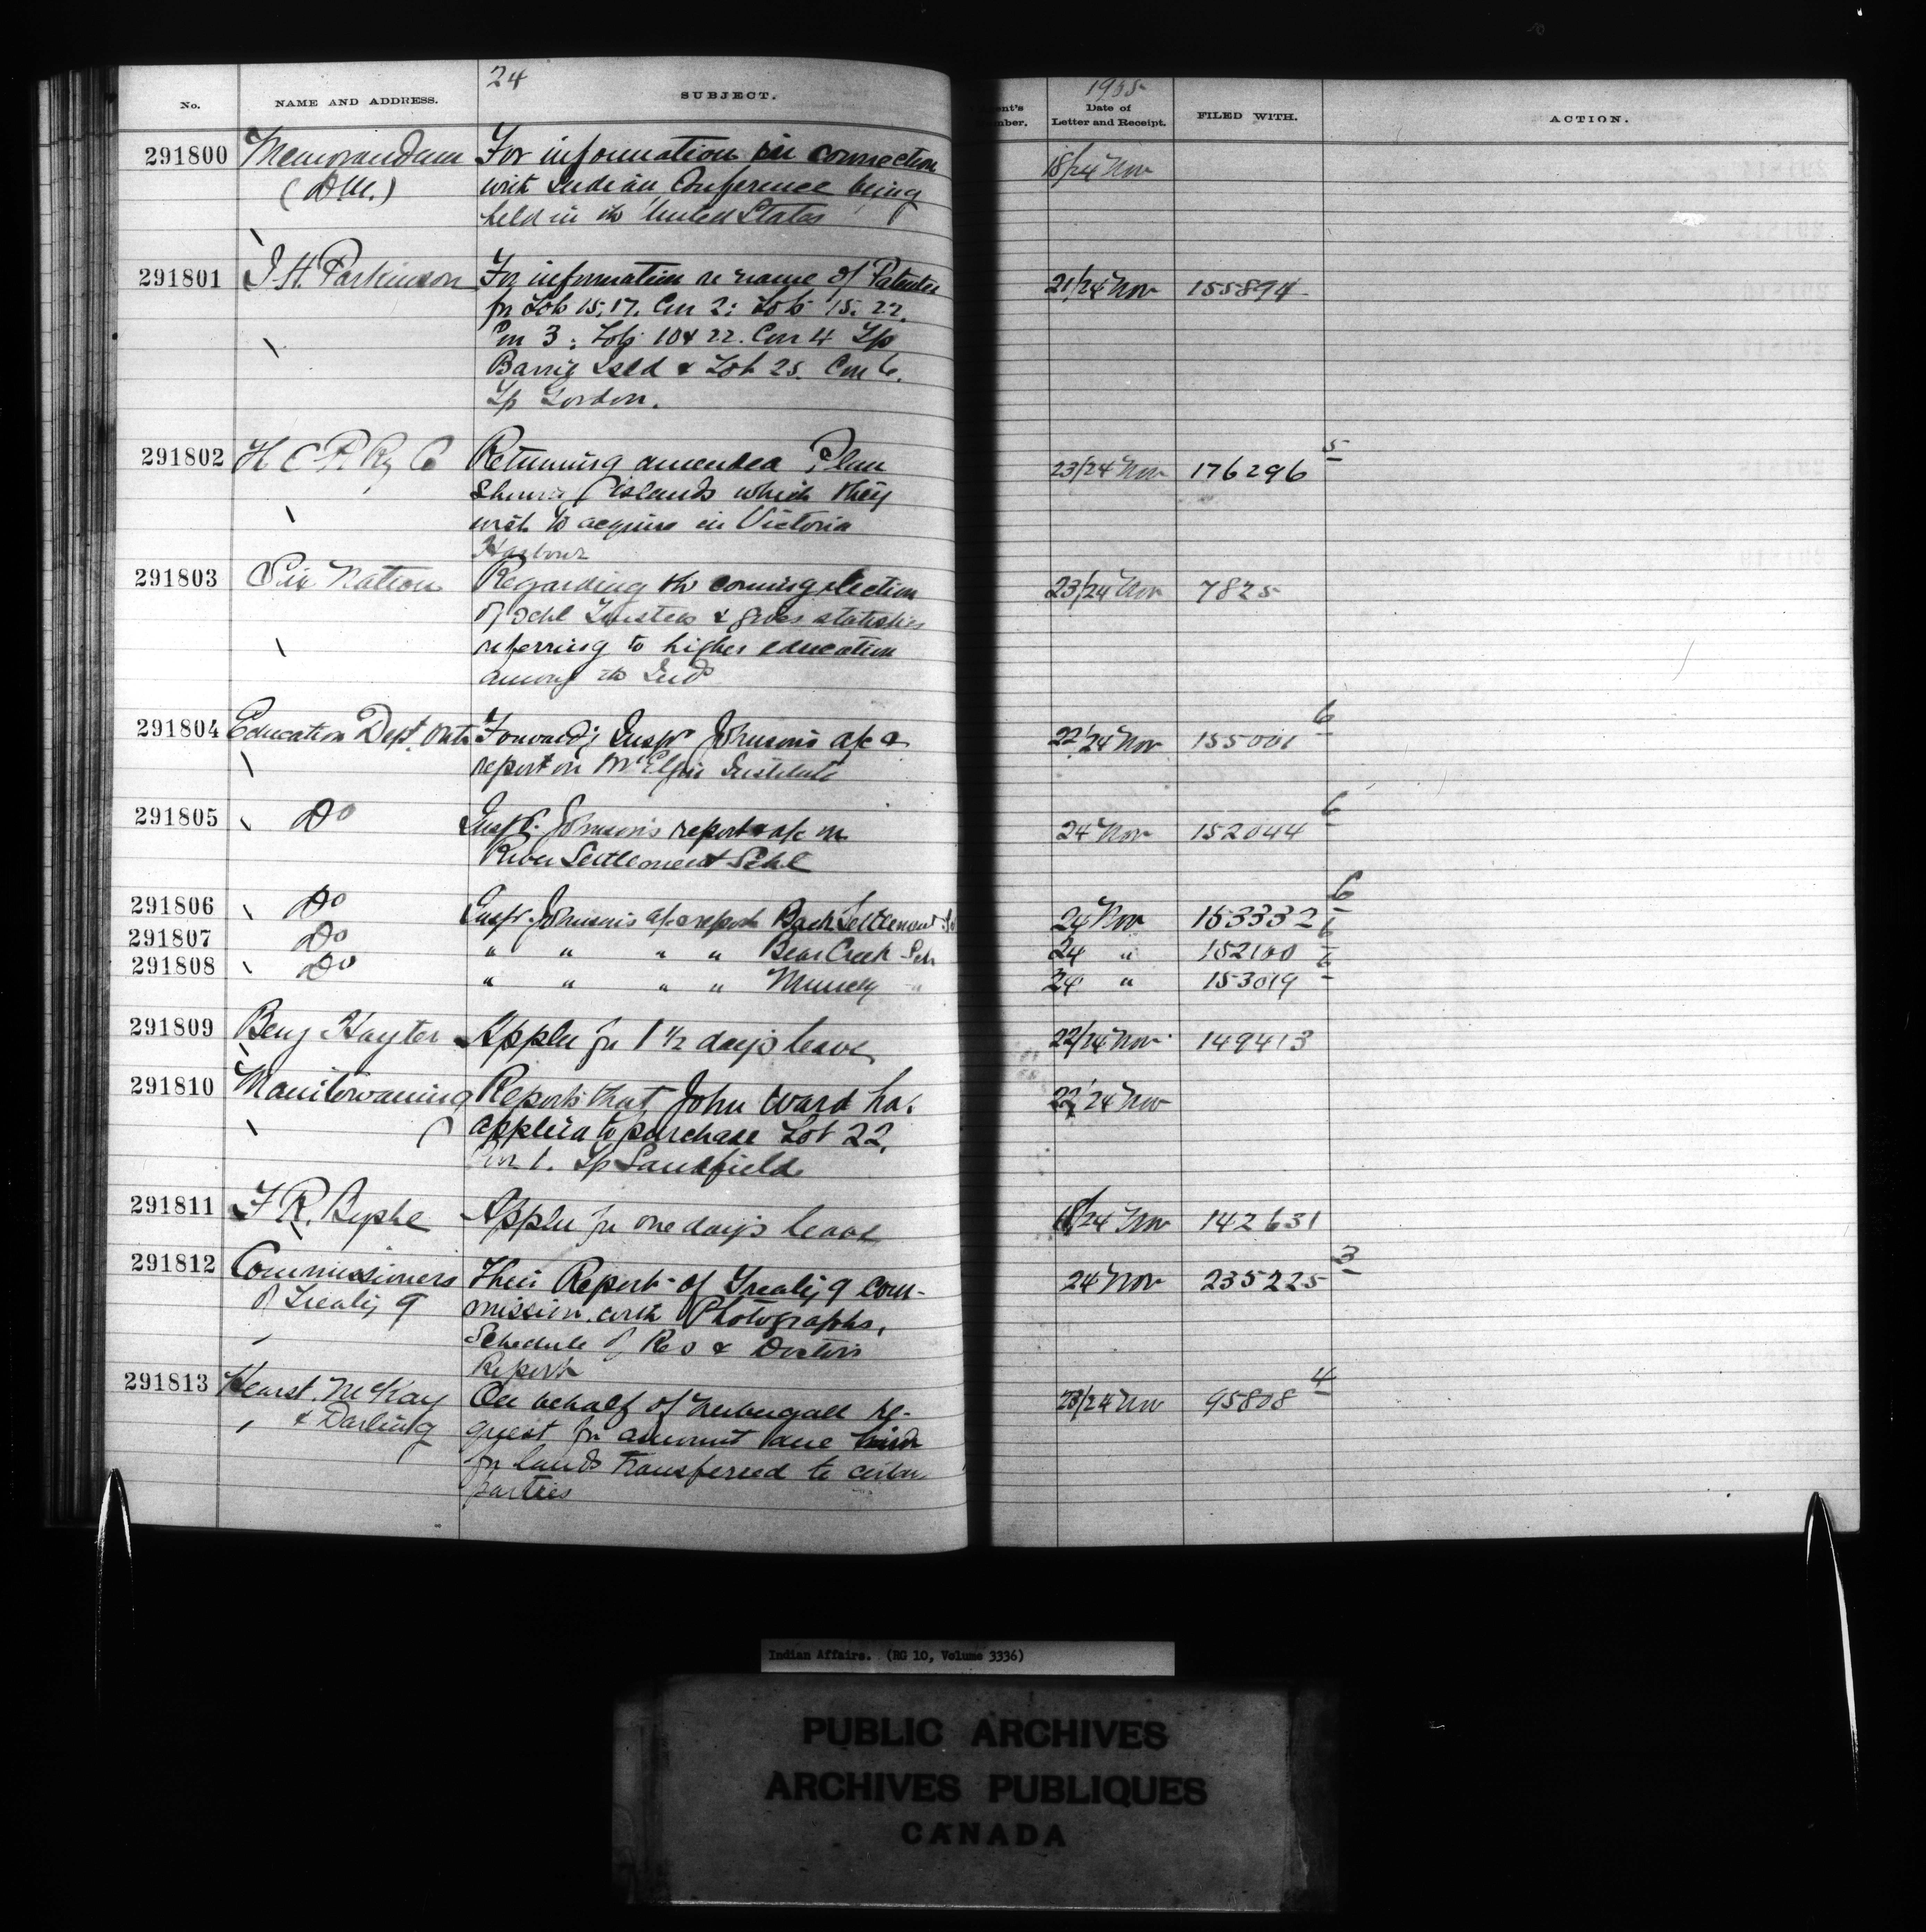 24
1905
No.
NAME AND ADDRESS.
SUBJECT.
ent's
mber.
Date of
Letter and Receipt.
FILED WITH.
ACTION.
291800 Memorandum For information in connection 18/24 Nov
(DM.) with Indian Conference being
held in the United States
291801 J.H. Parkinson For information re name of Patentee 21/24 Nov 155894
for Lots 15, 17. Con 2: Lots 15. 22.
Con 3: Lots 10 & 22. Con 4 Tp
Barrie Isld & Lot 25. Con 6.
Tp Gordon.
291802 C P Ry Co Returning amended Plan 23/24 Nov 176296 5
islands which they
wish to acquire in Victoria
Harbour
291803 Six Nation Regarding the coming election 23/24 Nov 7825
of Schl Trustees & gives statistics
referring to higher education
among the Inds
291804 Education Dept. Ont. Forwardg Inspr Johnson's a/c & 22/24 Nov 155001 6
report on Institute
291805 Do Inspr. Johnson's report & a/c on 24 Nov 152044 6
River Settlement Schl
291806 Do Inspr. Johnson's a/c & report Back Settlement 24 Nov 153332 6
291807 Do " " " " Bear Creek Sch 24 " 152100 6
291808 Do " " " " Muncey " 24 " 153019 6
291809 Benj Hayter Applies for 1 1/2 days leave 22/24 Nov 149413
291810 Manitowaning Reports that John Ward has 22/24 Nov
applied to purchase Lot 22,
Con 1. Tp Sandfield
291811 F R. Byshe Applies for one day's leave 18/24 Nov 142631
291812 Commissioners Their Report of Treaty 9 Com- 24 Nov 235225 3
of Treaty 9 mission with Photographs,
Schedule of Res & Doctors
Report
291813 Hearst. McKay On behalf of re- 23/24 Nov 95808 4
& Darling quest for amount due him
for lands transferred to certain
parties
Indian Affairs. (RG 10, Volume 3336)
PUBLIC ARCHIVES
ARCHIVES PUBLIQUES
CANADA